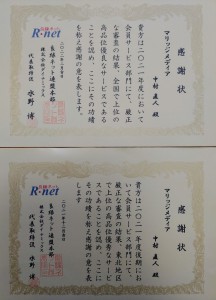 感謝状
マリッジメディア
中村直人 殿
貴方は二〇二一年度において
会員サービス部門にて、厳正
な審査の結果、全国で上位の
高品位優良なサービスである
ことを認め、ここにその功績
を称え感謝の意を表します。
二〇二二年二月吉日
良縁ネット連盟本部
代表取締役 水野 博
良縁ネット
R-net
感謝状
マリッジメディア
中村直人 殿
貴方は二〇二一年度後期に
おいて会員サービス部門にて、
厳正な審査の結果、東北地区
で上位の高品位優秀なサービ
スであることを認め、ここに
その功績を称え感謝の意を表
します。
良縁ネット連盟本部
代表取締役 水野 博
R-net